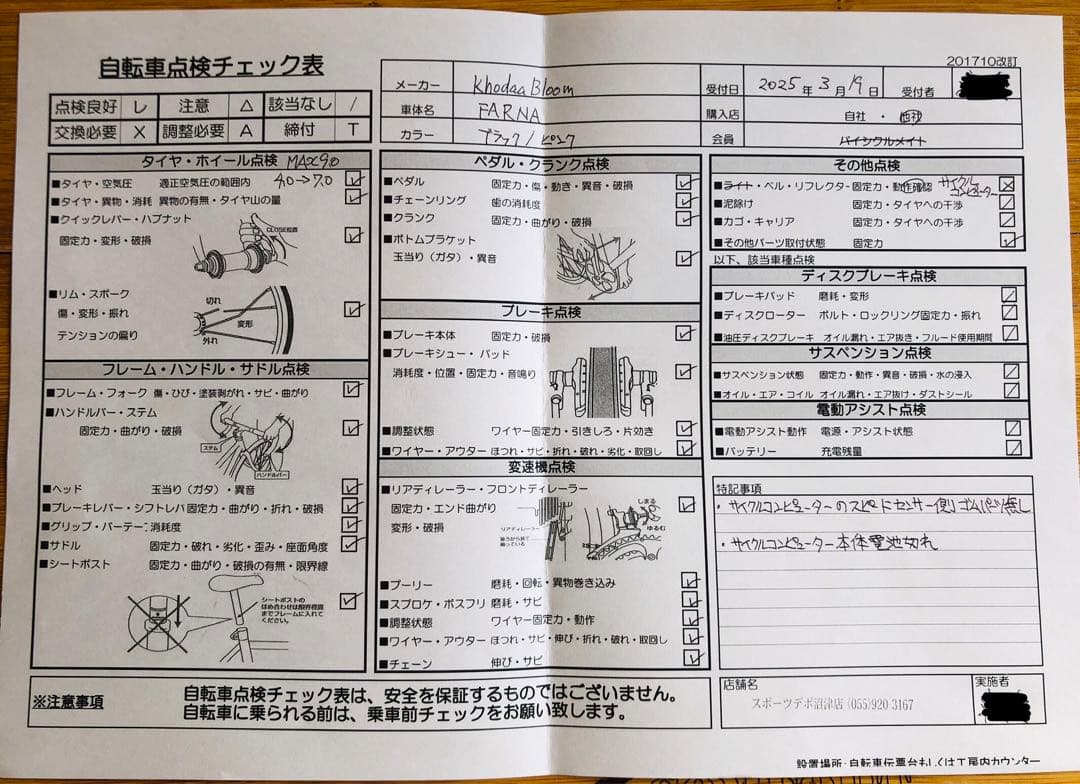 自転車点検チェック表
201710改訂
点検良好 レ 注意 △ 該当なし /
交換必要 X 調整必要 A 締付 T
メーカー Khodaa Bloom
車体名 FARNA
カラー ブラック/ピンク
受付日 2025年3月19日 受付者
購入店 自社・他社
会員 バイシクルメイト
タイヤ・ホイール点検 MAX9.0
■タイヤ・空気圧 適正空気圧の範囲内 4.0→7.0
■タイヤ・異物・消耗 異物の有無・タイヤ山の量
■クイックレバー・ハブナット
固定力・変形・破損
CLOSE位置
■リム・スポーク
傷・変形・振れ
テンションの偏り
切れ
変形
外れ
フレーム・ハンドル・サドル点検
■フレーム・フォーク 傷・ひび・塗装剥がれ・サビ・曲がり
■ハンドルバー・ステム
固定力・曲がり・破損
ステム
ハンドルバー
■ヘッド 玉当り(ガタ)・異音
■ブレーキレバー・シフトレバ 固定力・曲がり・折れ・破損
■グリップ・バーテープ 消耗度
■サドル 固定力・破れ・劣化・歪み・座面角度
■シートポスト 固定力・曲がり・破損の有無・限界線
シートポストの
はめ合わせは限界標識
までフレームに入れて
ください。
ペダル・クランク点検
■ペダル 固定力・傷・動き・異音・破損
■チェーンリング 歯の消耗度
■クランク 固定力・曲がり・破損
■ボトムブラケット
玉当り(ガタ)・異音
ブレーキ点検
■ブレーキ本体 固定力・破損
■ブレーキシュー・パッド
消耗度・位置・固定力・音鳴り
■調整状態 ワイヤー固定力・引きしろ・片効き
■ワイヤー・アウター ほつれ・サビ・折れ・破れ・劣化・取回し
変速機点検
■リアディレーラー・フロントディレーラー
固定力・エンド曲がり
変形・破損
リアディレーラー
しまる
ゆるむ
■プーリー 磨耗・回転・異物巻き込み
■スプロケ・ボスフリ 磨耗・サビ
■調整状態 ワイヤー固定力・動作
■ワイヤー・アウター ほつれ・サビ・伸び・折れ・破れ・取回し
■チェーン 伸び・サビ
その他点検
■ライト・ベル・リフレクター 固定力・動作確認 サイクルコンピューター
■泥除け 固定力・タイヤへの干渉
■カゴ・キャリア 固定力・タイヤへの干渉
■その他パーツ取付状態 固定力
以下、該当車種点検
ディスクブレーキ点検
■ブレーキパッド 磨耗・変形
■ディスクローター ボルト・ロックリング固定力・振れ
■油圧ディスクブレーキ オイル漏れ・エア抜き・フルード使用期間
サスペンション点検
■サスペンション状態 固定力・動作・異音・破損・水の浸入
■オイル・エア・コイル オイル漏れ・エア抜け・ダストシール
電動アシスト点検
■電動アシスト動作 電源・アシスト状態
■バッテリー 充電残量
特記事項
・サイクルコンピューターのスピードセンサー側ゴムバンド無し
・サイクルコンピューター本体電池切れ
※注意事項
自転車点検チェック表は、安全を保証するものではございません。
自転車に乗られる前は、乗車前チェックをお願い致します。
店舗名
スポーツデポ沼津店 (055)920 3167
実施者
設置場所:自転車伝票台もしくは工房内カウンター